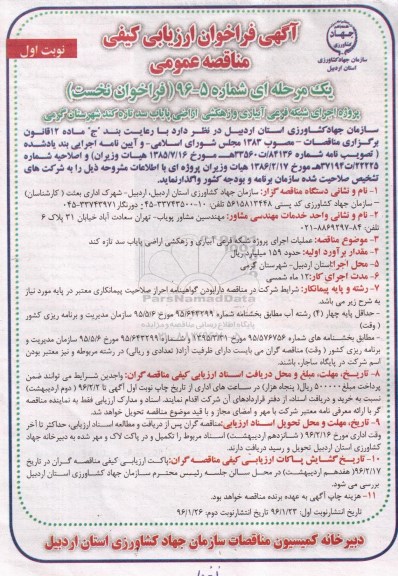 نوبت اول
سازمان جهاد کشاورزی
استان اردبیل
آگهی فراخوان ارزیابی کیفی
مناقصه عمومی
یک مرحله ای شماره ۵-۹۶ (فراخوان نخست)
پروژه اجرای شبکه فرعی آبیاری و زهکشی اراضی پایاب سد تازه کند شهرستان گرمی
سازمان جهادکشاورزی استان اردبیل در نظر دارد با رعایت بند "ج" ماده ۱۲قانون
برگزاری مناقصات – مصوب ۱۳۸۳ مجلس شورای اسلامی- و آیین نامه اجرایی بند یادشده
( تصویب نامه شماره ۸۴۱۳۶/ت۳۳۵۶۰هـ مورخ ۱۳۸۵/۷/۱۶ هیات وزیران) و اصلاحیه شماره
هیات وزیران پروژه ای با اطلاعات مشروحه ذیل را به شرکت های
تشخیص صلاحیت شده سازمان برنامه و بودجه کشور واگذارنماید.
۱- نام و نشانی دستگاه مناقصه گزار: سازمان جهاد کشاورزی استان اردبیل، اردبیل- شهرک اداری بعثت ( کارشناسان)
– سازمان جهاد کشاورزی کد پستی ۵۶۱۵۸۱۳۴۴۶ تلفن: ۱۰-۳۳۷۴۳۵۰۰-۰۴۵ دورنگار ۳۳۷۴۳۹۷۱-۰۴۵
۲- نام و نشانی واحد خدمات مهندسی مشاور: مهندسین مشاور پویاب- تهران سعادت آباد خیابان ۳۱ پلاک ۶
تلفن: ۸۴-۸۸۶۹۲۹۷-۰۲۱
۳- موضوع مناقصه: عملیات اجرای پروژه شبکه فرعی آبیاری و زهکشی اراضی پایاب سد تازه کند
۴- مقدار برآورد اولیه: حدود ۱۵۹ میلیارد ریال
۵- محل اجرا:استان اردبیل- شهرستان گرمی
۶- مدت اجرای کار: ۱۲ ماه شمسی
۷- رشته و پایه پیمانکار: شرایط شرکت در مناقصه دارابودن گواهینامه احراز صلاحیت پیمانکاری معتبر در پایه مورد نیاز
به شرح زیر می باشد.
- حداقل پایه چهار (۴) رشته آب مطابق بخشنامه شماره ۹۵/۶۴۴۲۹۹ مورخ ۹۵/۵/۶ سازمان مدیریت و برنامه ریزی کشور
( وقت)
- مطابق بخشنامه های شماره ۹۵/۵۷۶۷۵۶ مورخ و شماره ۹۵/۶۴۴۲۹۹ مورخ ۹۵/۵/۶ سازمان مدیریت و
برنامه ریزی کشور ( وقت) مناقصه گران می بایست دارای ظرفیت آزاد( تعدادی و ریالی) در رشته مربوطه و نیز معتبر بودن
اسم شرکت در پایگاه ساجار، باشند.
۸- تاریخ، مهلت، مبلغ و محل دریافت اسناد ارزیابی کیفی مناقصه گران: واجدین شرایط می توانند ضمن
پرداخت مبلغ ۵۰۰۰۰۰ ریال( پنجاه هزار) در ساعت های اداری از تاریخ چاپ نوبت اول آگهی تا ۹۶/۲/۲ ( دوم اردیبهشت)
نسبت به خرید و دریافت اسناد از دفتر قراردادهای آن شرکت اقدام نمایند. اسناد و مدارک ارزیابی فقط به نماینده مناقصه
گر با ارائه معرفی نامه معتبر شرکت با مهر و امضای مجاز و با قید موضوع مناقصه تحویل خواهد شد.
۹- تاریخ، مهلت و محل تحویل اسناد ارزیابی:مناقصه گران پس از دریافت و مطالعه اسناد ارزیابی، حداکثر تا آخر
وقت اداری مورخ ۹۶/۲/۱۶ ( شانزدهم اردیبهشت) اسناد مربوط را تکمیل و در پاکت لاک و مهر شده به دبیرخانه جهاد
کشاورزی استان اردبیل تحویل و رسید دریافت دارند.
۱۰- تاریخ گشایش پاکات ارزیابی کیفی مناقصه گران:پاکت ارزیابی کیفی مناقصه گران در تاریخ
۹۶/۲/۱۷( هفدهم اردیبهشت) در محل سالن جلسه رئیس محترم سازمان جهاد کشاورزی استان اردبیل
بررسی می شود.
۱۱- هزینه چاپ آگهی به عهده برنده مناقصه خواهد بود.
تاریخ انتشارنوبت اول: ۹۶/۱/۲۳ تاریخ انتشارنوبت دوم: ۹۶/۱/۲۶
دبیرخانه کمیسیون مناقصات سازمان جهاد کشاورزی استان اردبیل